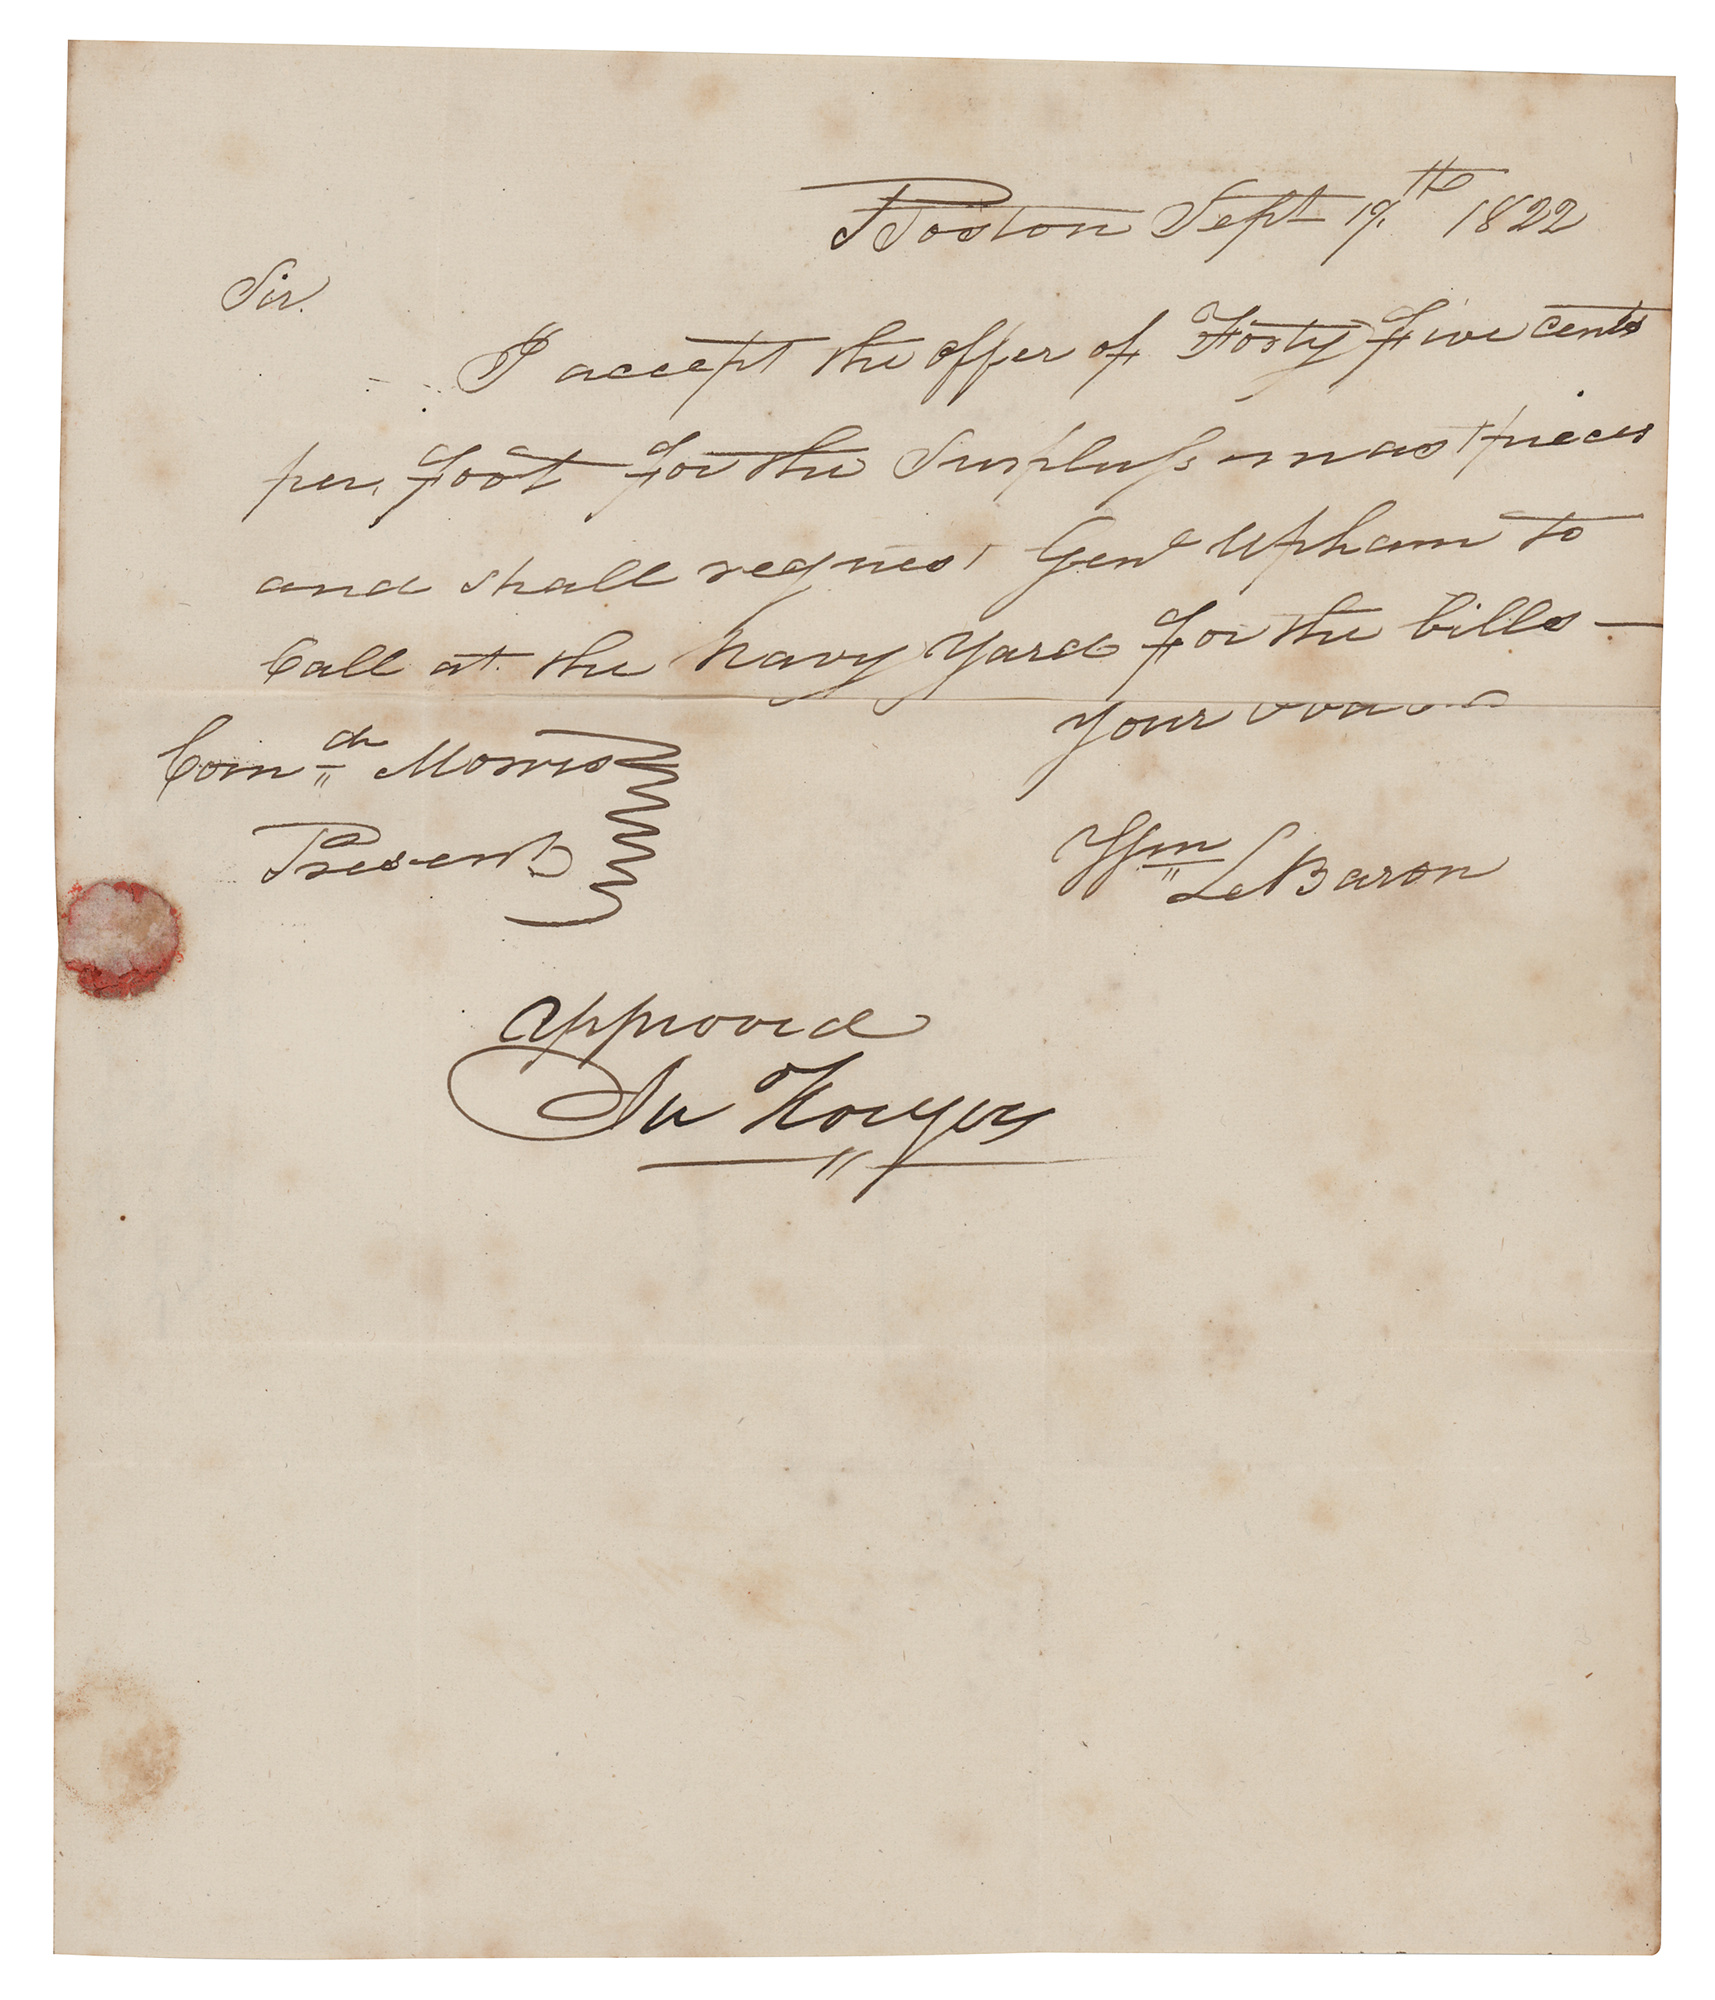 Boston Sept 19th 1822
Sir.
I accept the offer of Forty five cents
per, foot for the Surpluss mast pieces
and shall request Genl Upham to
Call at the Navy Yard for the bills —
Your
Comdr Morris
Present
Wm LeBaron
approved